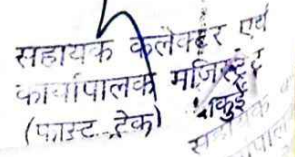 सहायक कलेक्टर एवं
कार्यपालक मजिस्ट्रेट
(फास्ट-ट्रेक)